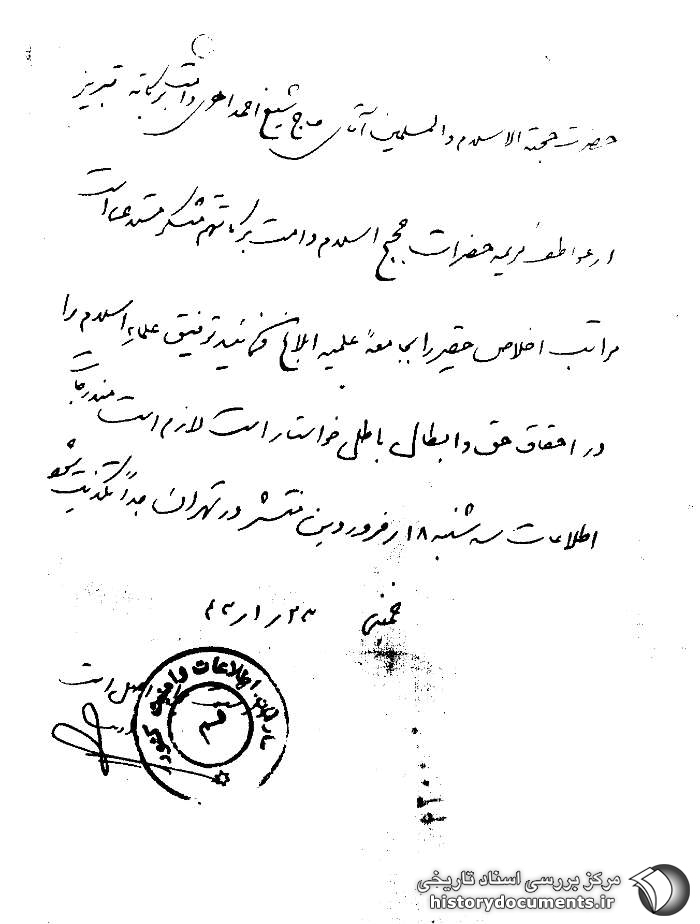 حضرت حجة الاسلام والمسلمین آقای حاج شیخ احمد اهری دامت برکاته تبریز
از عواطف کریمه حضرات حجج اسلام دامت برکاتهم متشکر مستدعی است
مراتب اخلاص حقیر را بجامعه علمیه ابلاغ فرمائید توفیق علماء اسلام را
در احقاق حق و ابطال باطل خواستار است لازم است مندرجات
اطلاعات سه شنبه ۱۸ر فروردین منتشر در تهران جداً تکذیب شود
خمینی ۲۳ر۱ر۴۳
سازمان اطلاعات و امنیت کشور
قم
اصل است
مرکز بررسی اسناد تاریخی
historydocuments.ir